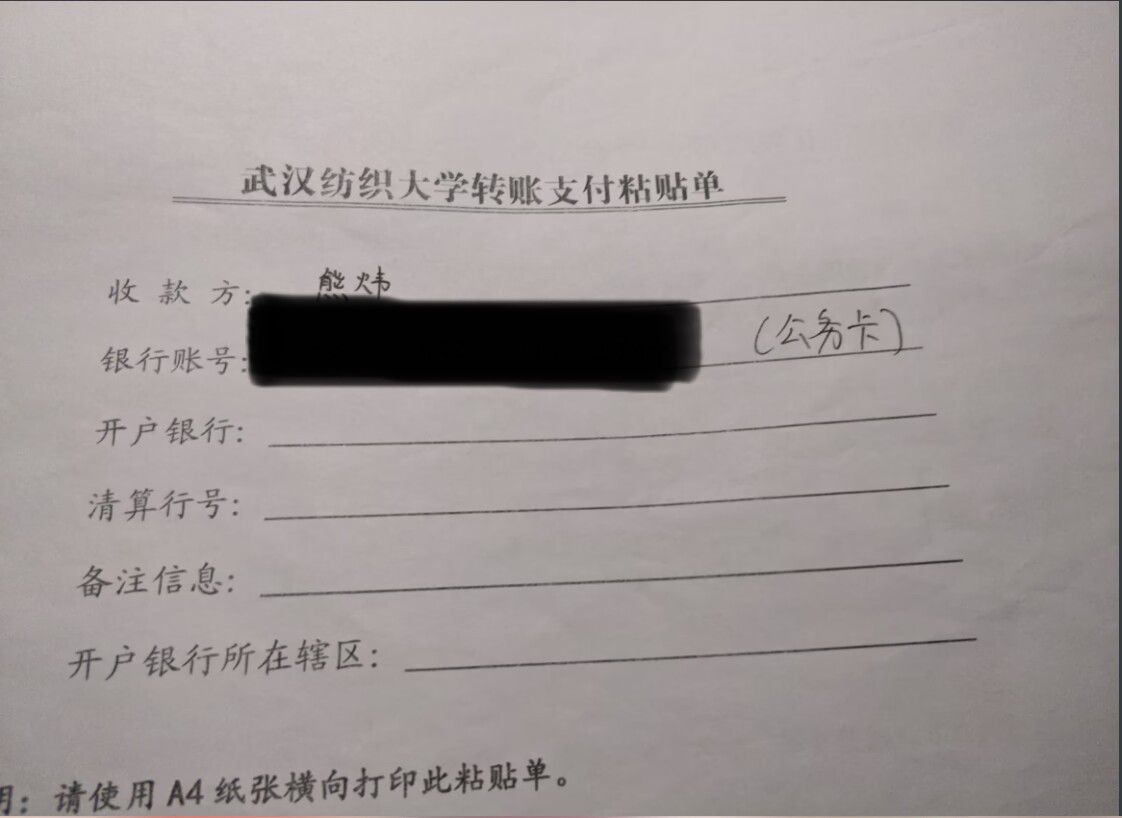 武汉纺织大学转账支付粘贴单
收 款 方: 熊炜
银行账号: (公务卡)
开户银行:
清算行号:
备注信息:
开户银行所在辖区:
明: 请使用 A4 纸张横向打印此粘贴单。